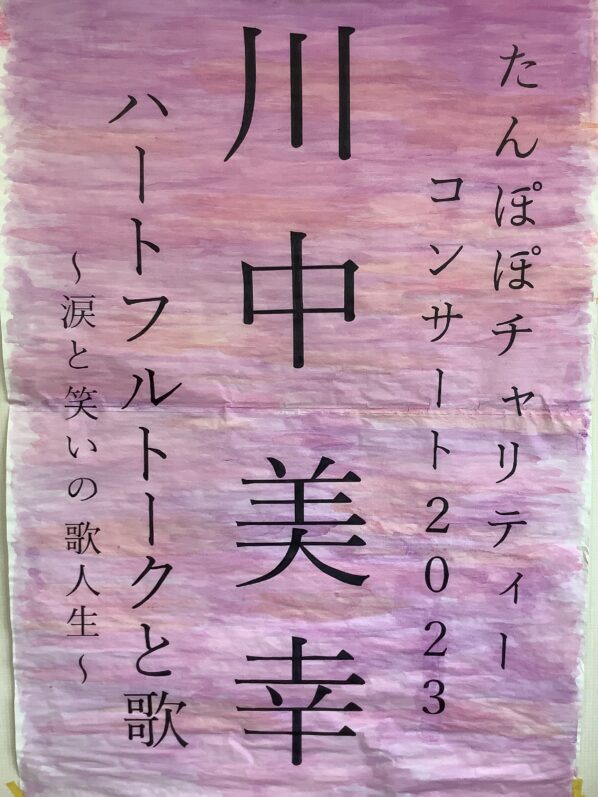 たんぽぽチャリティー
コンサート2023
川中美幸
ハートフルトークと歌
～涙と笑いの歌人生～